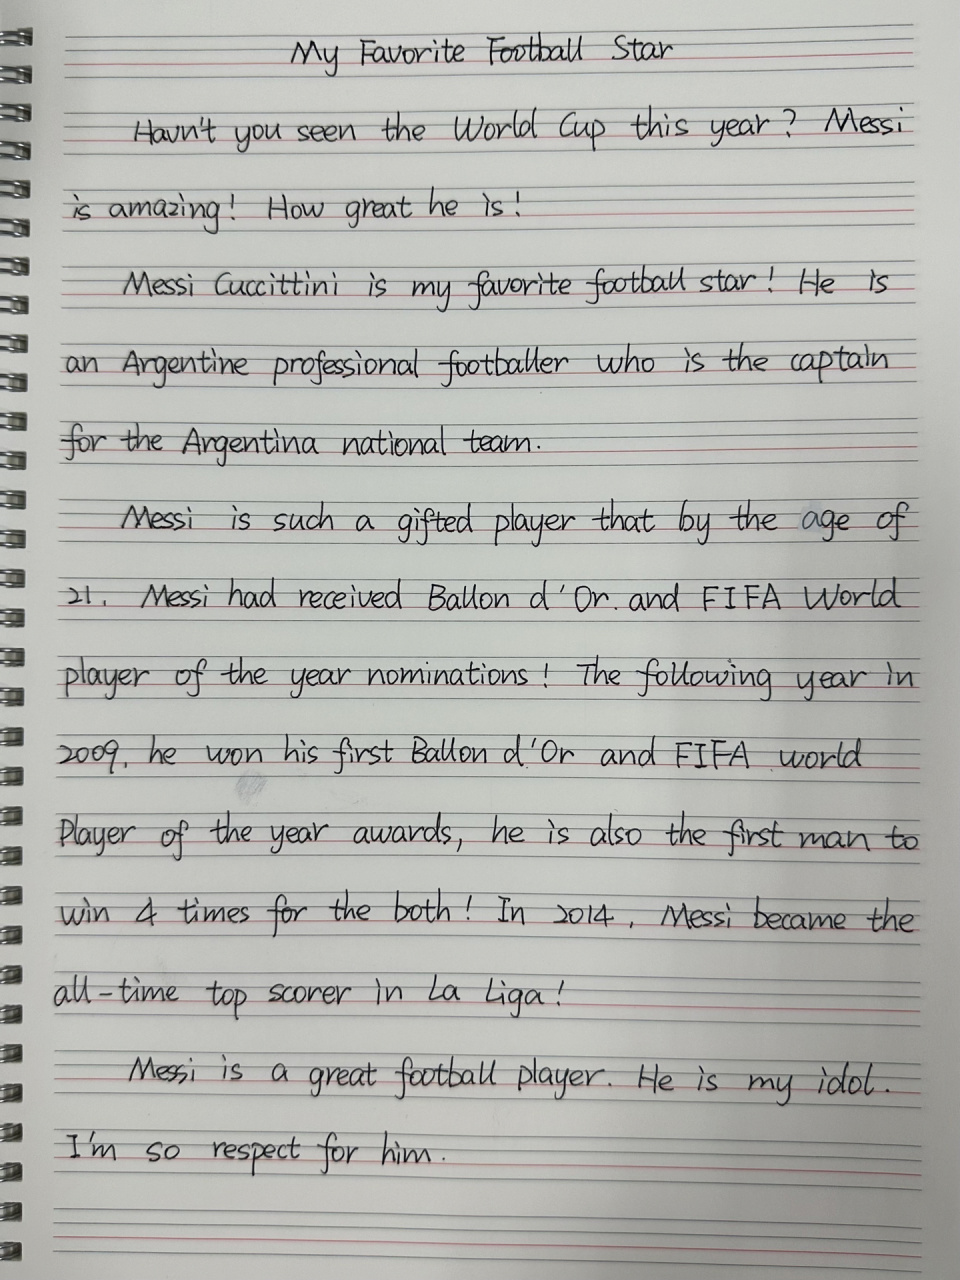 My Favorite Football Star
Havn't you seen the World Cup this year? Messi
is amazing! How great he is!
Messi Cuccittini is my favorite football star! He is
an Argentine professional footballer who is the captain
for the Argentina national team.
Messi is such a gifted player that by the age of
21, Messi had received Ballon d'Or. and FIFA World
player of the year nominations! The following year in
2009, he won his first Ballon d'Or and FIFA world
Player of the year awards, he is also the first man to
win 4 times for the both! In 2014, Messi became the
all-time top scorer in La Liga!
Messi is a great football player. He is my idol.
I'm so respect for him.